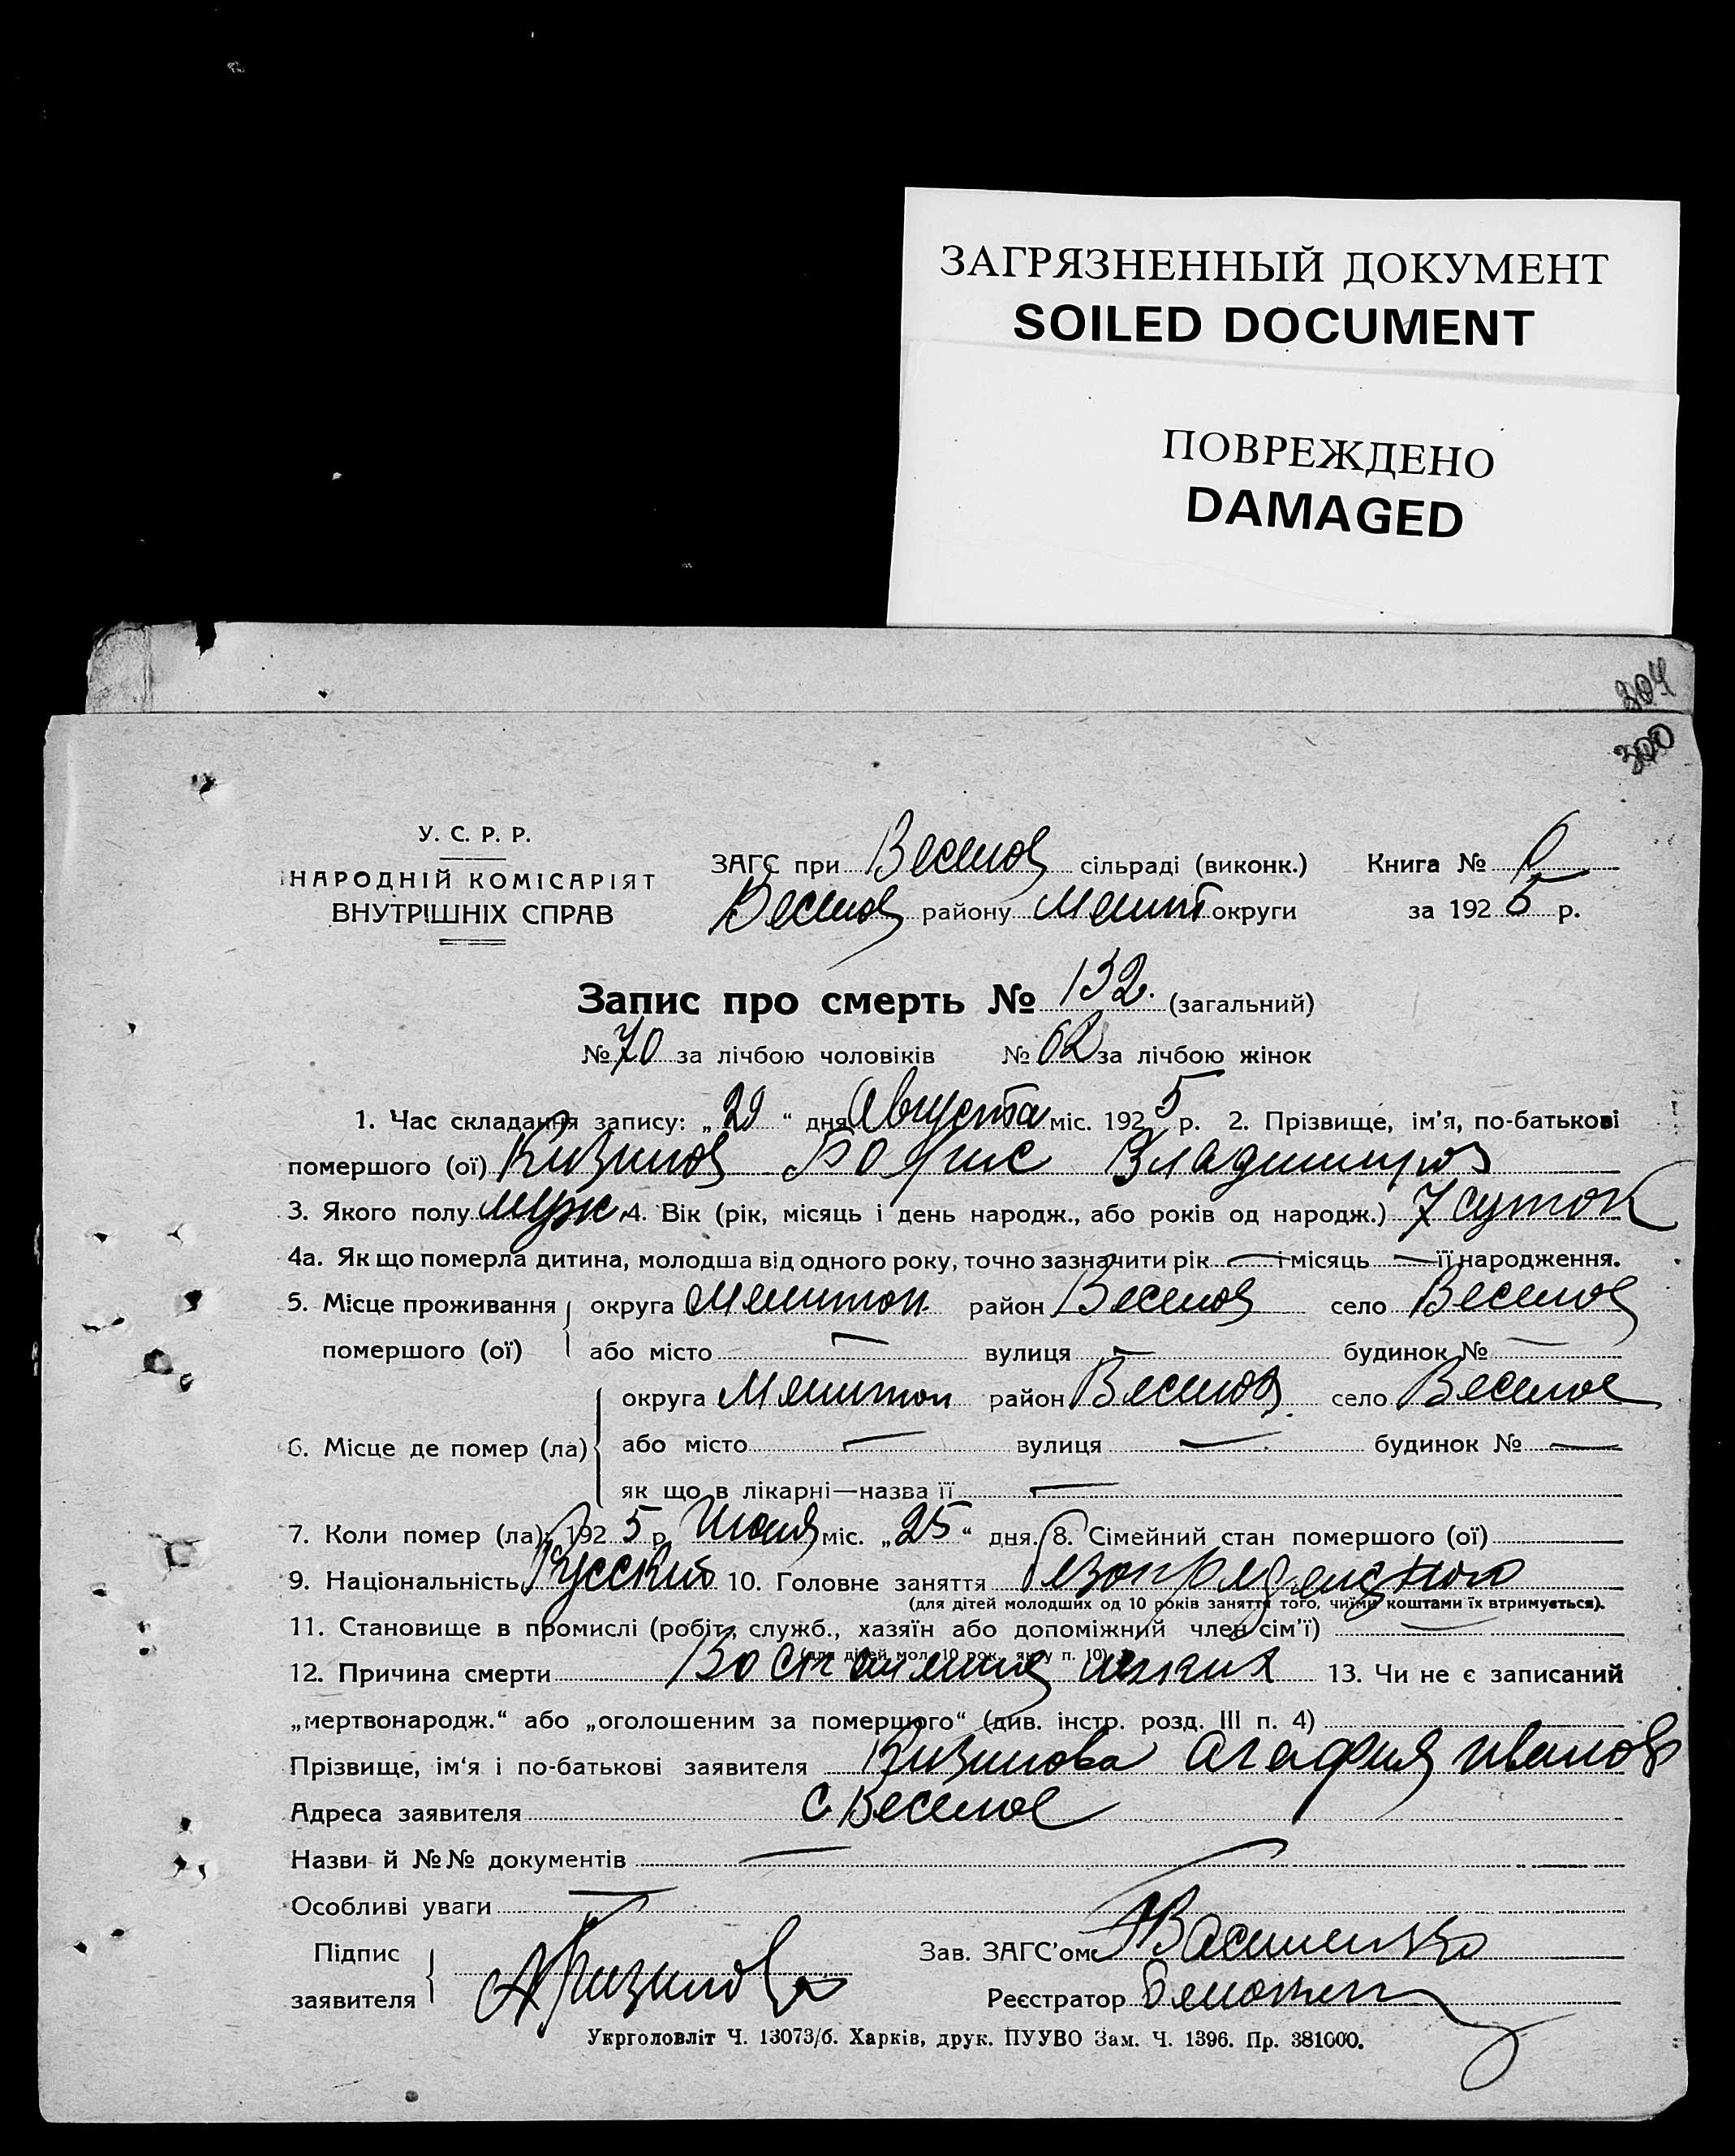 ЗАГРЯЗНЕННЫЙ ДОКУМЕНТ
SOILED DOCUMENT
ПОВРЕЖДЕНО
DAMAGED
304
300
У. С. Р. Р.
НАРОДНІЙ КОМІСАРІЯТ
ВНУТРІШНІХ СПРАВ
ЗАГС при Веселов сільраді (виконк.) Книга №
Веселов району Мелит округи за 1925 р.
Запис про смерть № 132. (загальний)
№ 70 за лічбою чоловіків № 62 за лічбою жінок
1. Час складання запису: „29“ дня Августа міс. 1925 р. 2. Прізвище, ім'я, по-батькові
помершого (ої) Кизилов Борис Владимиров
3. Якого полу муж. 4. Вік (рік, місяць і день народж., або років од народж.) 7 суток
4а. Як що померла дитина, молодша від одного року, точно зазначити рік — і місяць — її народження.
5. Місце проживання округа Мелитоп район Веселов село Веселое
помершого (ої) або місто — вулиця — будинок № —
округа Мелитоп район Веселов село Веселое
6. Місце де помер (ла) або місто — вулиця — будинок № —
як що в лікарні—назва її —
7. Коли помер (ла): 1925 р. Июля міс. „25“ дня. 8. Сімейний стан помершого (ої)
9. Національність Русский 10. Головне заняття
(для дітей молодших од 10 років заняття того, чиїми коштами їх втримується).
11. Становище в промислі (робіт., служб., хазяїн або допоміжний член сім'ї) —
(для дітей мол. 10 рок., як у п. 10)
12. Причина смерти Воспаление легких 13. Чи не є записаний
„мертвонародж.“ або „оголошеним за померщого“ (див. інстр. розд. III п. 4)
Прізвище, ім'я і по-батькові заявителя Кизилова Агафия Иванов
Адреса заявителя с. Веселое
Назви й №№ документів —
Особливі уваги —
Підпис
заявителя АКизилова
Зав. ЗАГС'ом Василенко
Реєстратор
Укрголовліт Ч. 13073/б. Харків, друк. ПУУВО Зам. Ч. 1396. Пр. 381000.